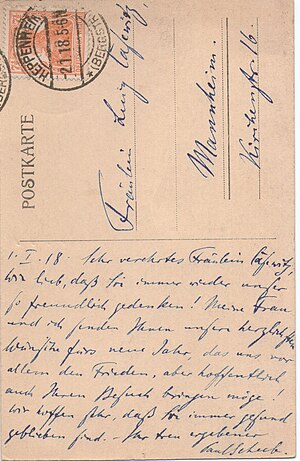 HEPPENHEIM
-2.1.18.5-6N
*(BERGSTR.)
POSTKARTE
Fräulein Lucy Cassewitz,
Mannheim.
Kirchenstr. 16
1. I. 18. Sehr verehrtes Fräulein
wie lieb, daß Sie immer wieder unser
so freundlich gedenken! Meine Frau
und ich senden Ihnen unsere herzlichsten
Wünsche fürs neue Jahr, das uns vor
allem den Frieden, aber hoffentlich
auch Ihren Besuch bringen möge!
Wir hoffen sehr, daß Sie immer gesund
geblieben sind. Ihr treu ergebener